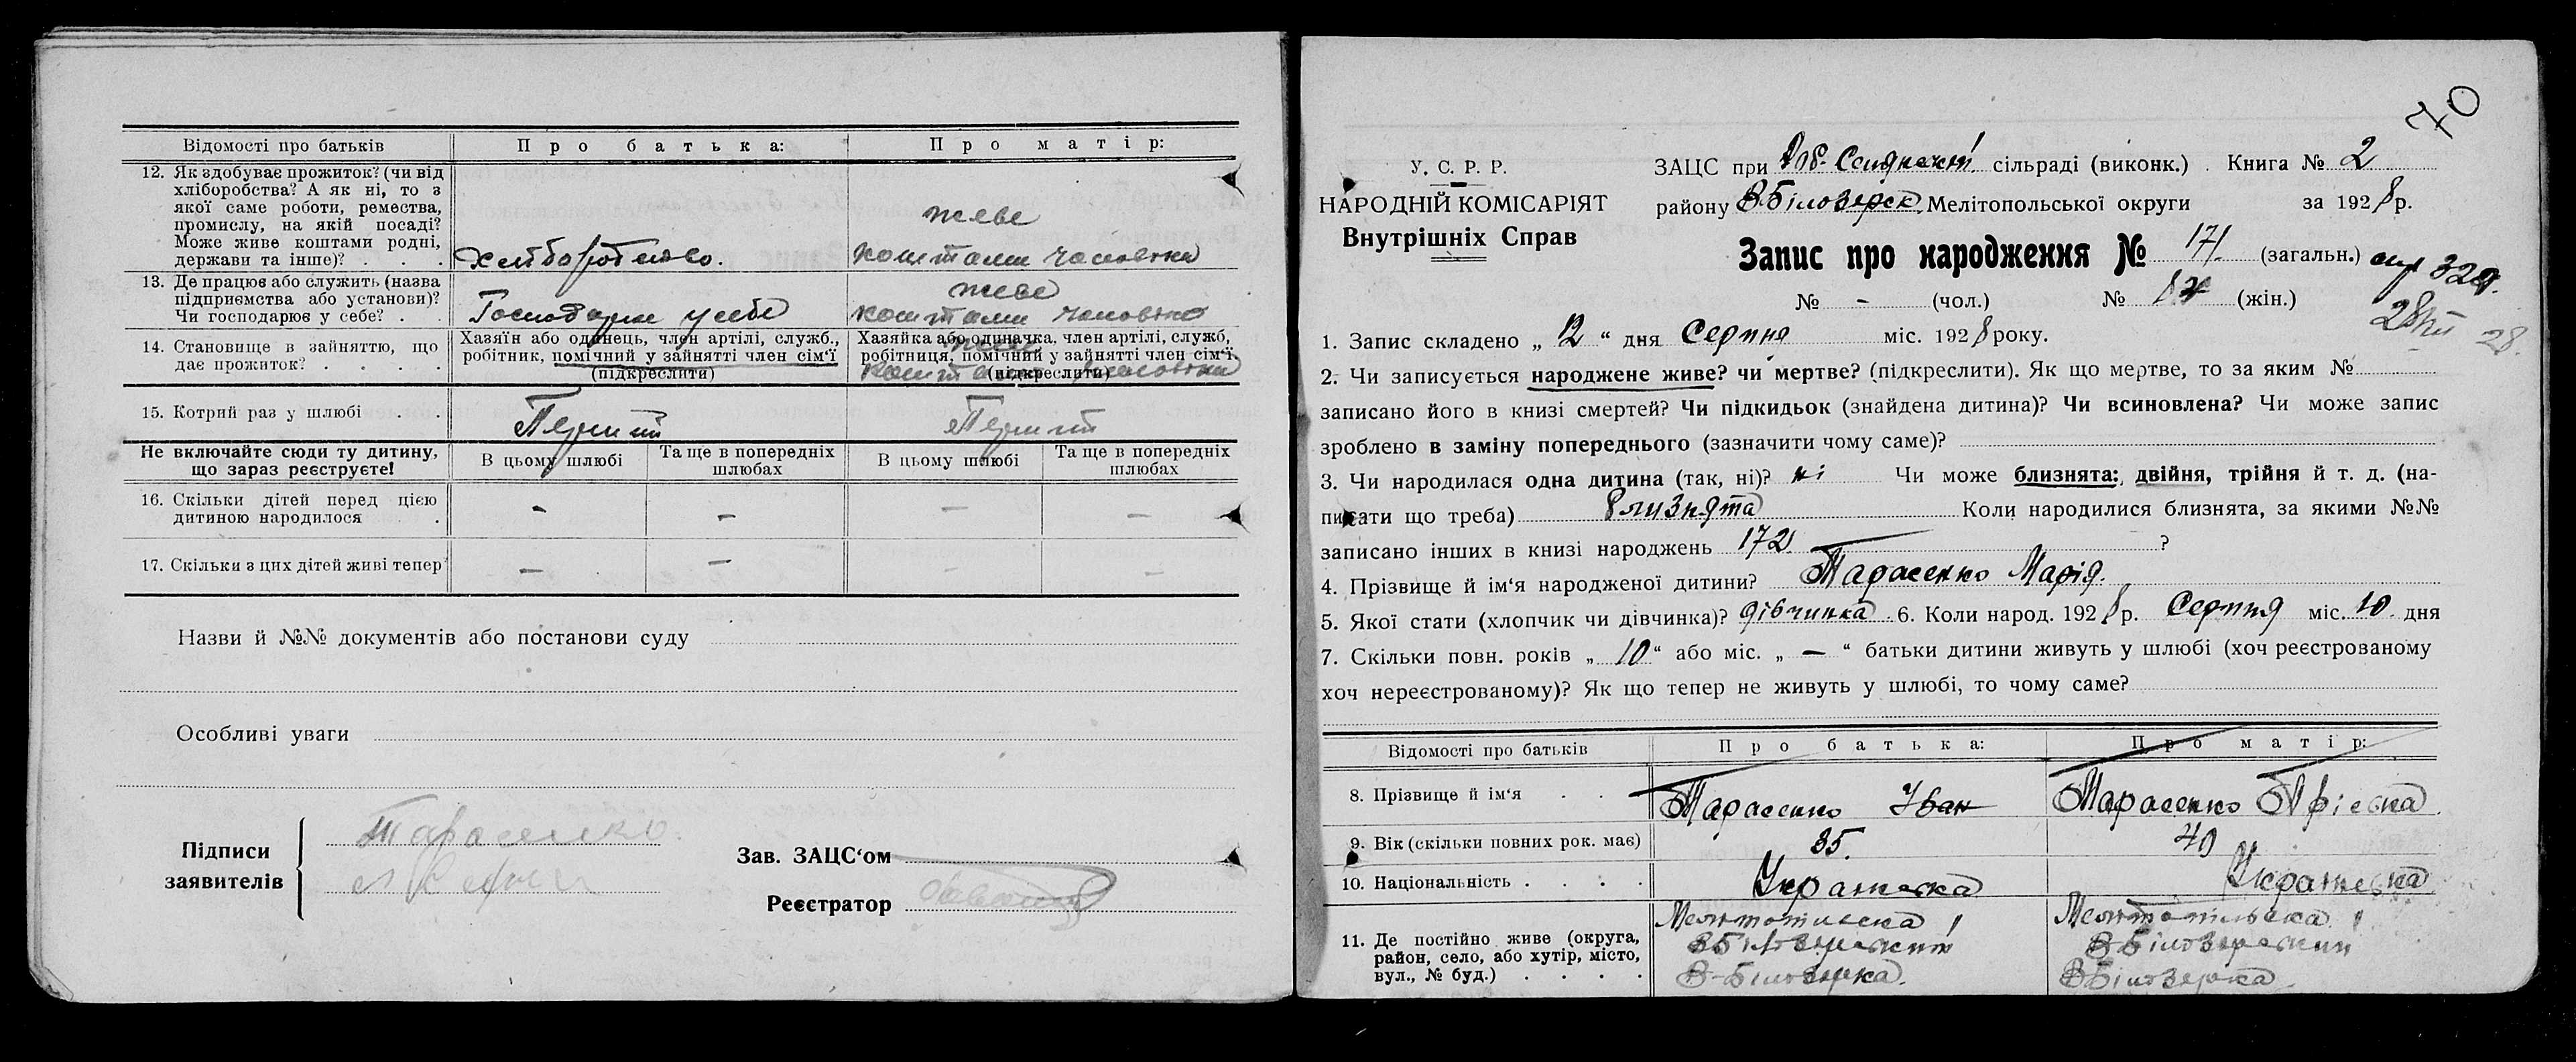 Відомості про батьків
Про батька:
Про матір:
12. Як здобуває прожиток? (чи від
хліборобства? А як ні, то з
якої саме роботи, ремества,
промислу, на якій посаді?
Може живе коштами родні,
держави та інше)? . . .
живе
коштами чоловіка
13. Де працює або служить (назва
підприємства або установи)?
Чи господарює у себе? . .
Господарює у себе
живе
коштами чоловіка
14. Становище в зайняттю, що
дає прожиток? . . . .
Хазяїн або одинець, член артілі, служб.,
робітник, помічний у зайнятті член сім'ї
(підкреслити)
Хазяйка або одиначка, член артілі, служб,
робітниця, помічний у зайнятті член сім'ї
(підкреслити)
живе
коштами чоловіка
15. Котрий раз у шлюбі . .
Перший
Перший
Не включайте сюди ту дитину,
що зараз реєструєте!
В цьому шлюбі
Та ще в попередніх
шлюбах
В цьому шлюбі
Та ще в попередніх
шлюбах
16. Скільки дітей перед цією
дитиною народилося .
— — — —
17. Скільки з цих дітей живі тепер
— — — —
Назви й №№ документів або постанови суду
Особливі уваги
Підписи
заявителів
Тарасенко
Зав. ЗАЦС'ом
Реєстратор
70
У. С. Р. Р.
НАРОДНІЙ КОМІСАРІЯТ
Внутрішніх Справ
ЗАЦС при сільраді (виконк.) . Книга № 2
району В Білозерск. Мелітопольської округи за 1928 р.
Запис про народження № 171 (загальн.)
№ - (чол.) № (жін.)
28/VII 28.
1. Запис складено „ 12 “ дня Серпня міс. 1928 року.
2. Чи записується народжене живе? чи мертве? (підкреслити). Як що мертве, то за яким №
записано його в книзі смертей? Чи підкидьок (знайдена дитина)? Чи всиновлена? Чи може запис
зроблено в заміну попереднього (зазначити чому саме)?
3. Чи народилася одна дитина (так, ні)? ні Чи може близнята: двійня, трійня й т. д. (на-
писати що треба) близнята Коли народилися близнята, за якими №№
записано інших в книзі народжень 172 ?
4. Прізвище й ім'я народженої дитини? Тарасенко Марія.
5. Якої стати (хлопчик чи дівчинка)? дівчинка. 6. Коли народ. 1928 р. Серпня міс. 10 дня
7. Скільки повн. років „ 10 “ або міс. „ — “ батьки дитини живуть у шлюбі (хоч реєстрованому
хоч нереєстрованому)? Як що тепер не живуть у шлюбі, то чому саме?
Відомості про батьків
Про батька:
Про матір:
8. Прізвище й ім'я . .
Тарасенко Іван
Тарасенко
9. Вік (скільки повних рок. має)
35.
40
10. Національність . . . .
Українська
Українська
11. Де постійно живе (округа,
район, село, або хутір, місто,
вул., № буд.) . . . .
Мелитопільска
В Білозерский
В-Білозерка.
Мелитопільска
В-Білозерский
В Білозерка